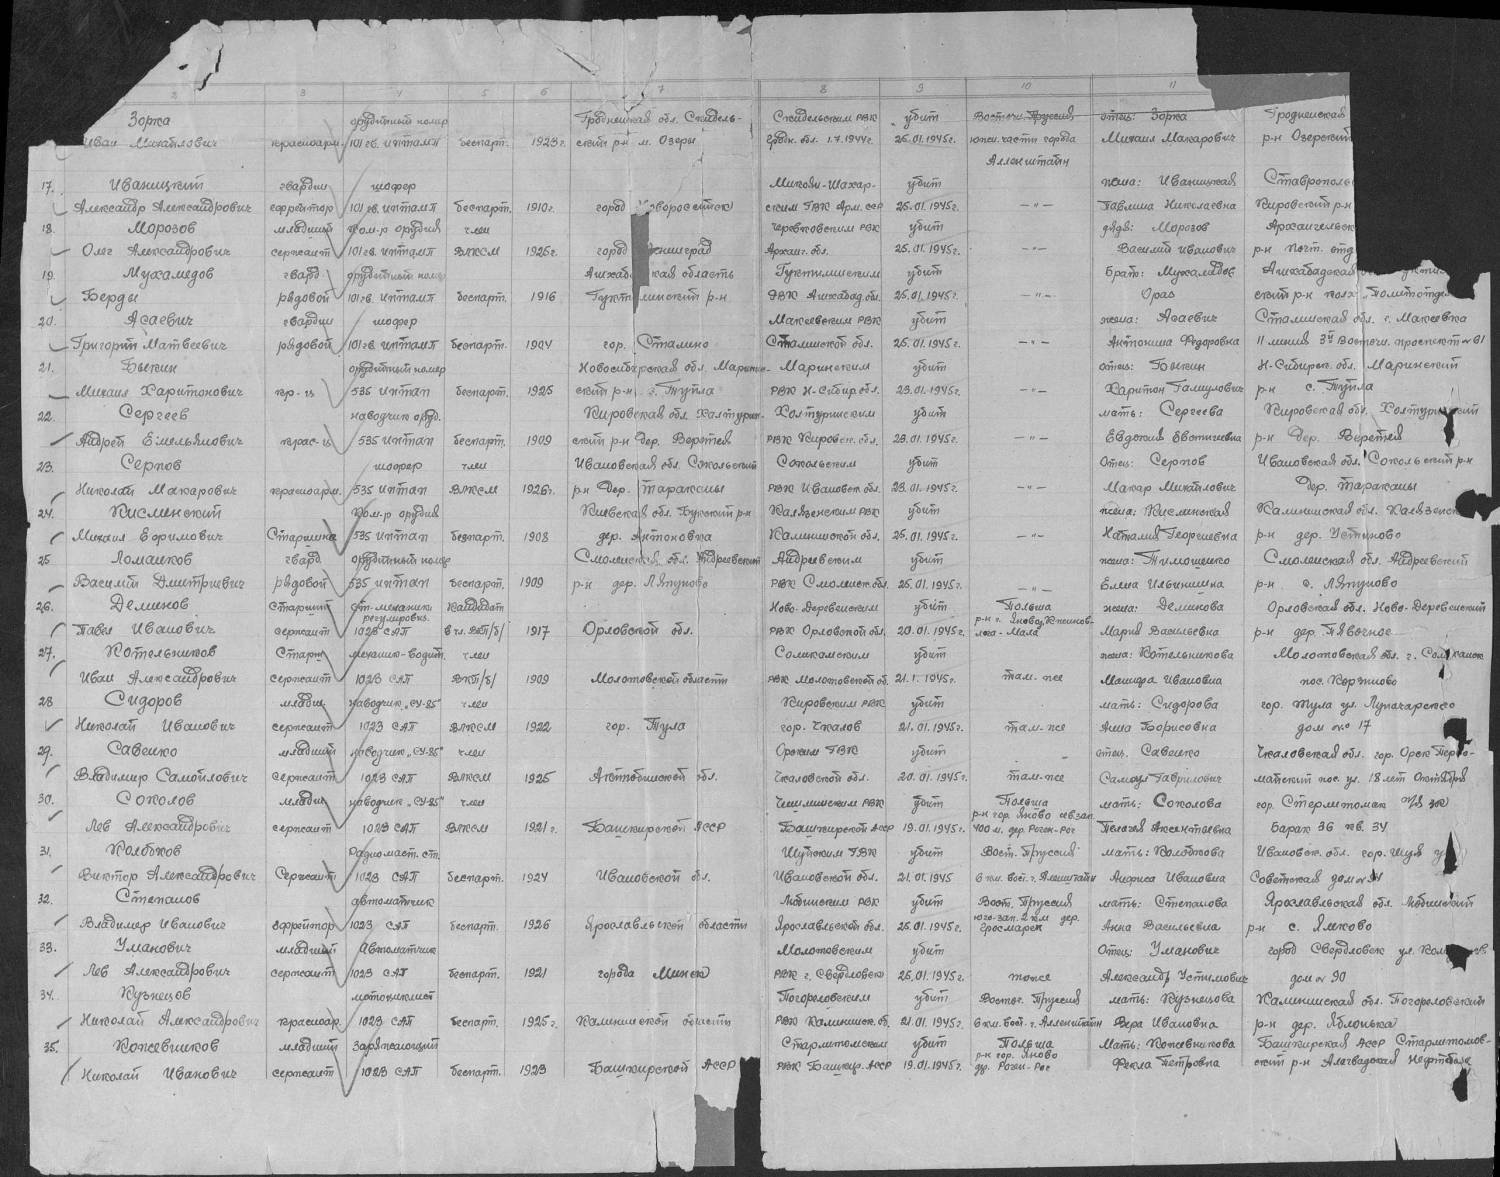 2 3 4 5 6 7 8 9 10 11
Зорка орудийный номер Гродненская обл. Скидель- Скидельским РВК убит Восточн. Пруссия отец: Зорка Гродненская
Иван Михайлович красноарм. 101 гв. иптап беспарт. 1923г. ский р-н м. Озеры Гродн. обл. 1.7.1944г. 25.01.1945г. южн. части города Михаил Макарович р-н Озерский
Алленштайн
17. Иваницкий гвардии шофер Микоян-Шахар- убит жена: Иваницкая Ставрополь
Александр Александрович ефрейтор 101 гв. иптап беспарт. 1910г. город Новороссийск ским ГВК 25.01.1945г. -"- Павлина Николаевна Кировский р-н
18. Морозов младший ком-р орудия член Черевковским РВК убит дядя: Морозов Архангельск
Олег Александрович сержант 101 гв. иптап ВЛКСМ 1925г. город Ленинград Арханг. обл. 25.01.1945г. -"- Василий Иванович р-н почт. отд
19. Мухамедов гвард. орудийный номер Ашхабадская область убит Брат: Мухамедов Ашхабадская
Берды рядовой 101 гв. иптап беспарт. 1916 р-н РВК Ашхабад. обл. 25.01.1945г. -"- Ораз ский р-н колх. „Политотдел
20. Асаевич гвардии шофер Макеевским РВК убит жена: Асаевич Сталинская обл. г. Макеевка
Григорий Матвеевич рядовой 101 гв. иптап беспарт. 1904 гор. Сталино Сталинской обл. 25.01.1945г. -"- Антонина Федоровна 11 линия 3й Восточн. проспект № 61
21. Быкин орудийный номер Новосибирская обл. Мариин- Мариинским убит отец: Быкин Н-Сибирск. обл. Мариинский
Михаил Харитонович кр-ц 535 иптап беспарт. 1925 ский р-н с. Туйла РВК Н-Сибир. обл. 23.01.1945г. -"- Харитон р-н с. Туйла
22. Сергеев наводчик оруд. Кировская обл. Халтурин- Халтуринским убит мать: Сергеева Кировская обл. Халтуринский
Андрей Емельянович крас-ц 535 иптап беспарт. 1909 ский р-н дер. Веретея РВК Кировск. обл. 23.01.1945г. -"- Евдокия р-н дер. Веретея
23. Серпов шофер член Ивановская обл. Сокольский Сокольским убит Отец: Серпов Ивановская обл. Сокольский р-н
Николай Макарович красноарм. 535 иптап ВЛКСМ 1926г. р-н дер. Тараканы РВК Ивановск. обл. 23.01.1945г. -"- Макар Михайлович дер. Тараканы
24. Кисленский ком-р орудия Киевская обл. Букский р-н Калязенским РВК убит жена: Кисленская Калининская обл. Калязенс
Михаил Ефимович Старшина 535 иптап беспарт. 1908 дер. Антоновка Калининской обл. 25.01.1945г. -"- Наталия Георгиевна р-н дер. Устиново
25. Ломанков гвард. орудийный номер Смоленская обл. Андреевский Андреевским убит жена: Тимошенко Смоленская обл. Андреевский
Василий Дмитриевич рядовой 535 иптап беспарт. 1909 р-н дер. Ляпуново РВК Смоленск. обл. 25.01.1945г. -"- Елена Ильинишна р-н с. Ляпуново
26. Деминов Старший ст-механик кандидат Ново-Деревенским убит Польша жена: Деминова Орловская обл. Ново-Деревенский
регулировк. р-н г. Яново
Павел Иванович сержант 1023 САП в чл. ВКП/б/ 1917 Орловской обл. РВК Орловской обл. 20.01.1945г. Мала Мария Васильевна р-н дер.
27. Котельников Старш. механик-водит. член Соликамским убит жена: Котельникова Молотовская обл. г. Соликамск
Иван Александрович сержант 1023 САП ВКП/б/ 1909 Молотовской области РВК Молотовской об. 21.1.1945г. там-же Ивановна пос.
28 Сидоров младш. наводчик „СУ-85" Кировским РВК убит мать: Сидорова гор. Тула ул. Луначарского
Николай Иванович сержант 1023 САП ВЛКСМ 1922 гор. Тула гор. Чкалов 21.01.1945г. там-же Анна Борисовна дом №о 17
29. Савенко младший наводчик „СУ-85" член Орским ГВК убит отец. Савенко Чкаловская обл. гор. Орск Перво-
Владимир Самойлович сержант 1023 САП ВЛКСМ 1925 Актюбинской обл. Чкаловской обл. 20.01.1945г. там-же Самоул Гаврилович майский пос. ул. 18 лет Октября
30. Соколов младш. наводчик „СУ-85" член Чишминским РВК убит Польша мать: Соколова гор. Стерлитомак
р-н гор. Яново сев. зап.
Лев Александрович сержант 1023 САП ВЛКСМ 1921г. Башкирской АССР Башкирской АССР 19.01.1945г. 400 м. дер. Роген-Рог Пелагея Аксентьевна Барак 36 кв. 34
31. Колбков Радиомаст. ст. Шуйским ГВК убит Вост. Пруссия мать: Колобкова Ивановск. обл. гор. Шуя у
Виктор Александрович Сержант 1023 САП беспарт. 1924 Ивановской обл. Ивановской обл. 21.01.1945 6 км. вост. г. Аленштайн Анфиса Ивановна Советская дом № 94
32. Степанов автоматчик Любимским РВК убит Вост. Пруссия мать: Степанова Ярославльская обл. Любимский
юго-зап. 2 км дер.
Владимер Иванович ефрейтор 1023 САП беспарт. 1926 Ярославльской области Ярославльской обл. 25.01.1945г. Анна Васильевна р-н с.
33. Уманович младший Автоматчик Молотовским убит Отец: Уманович город Свердловск ул.
Лев Александрович сержант 1023 САП беспарт. 1921 города Минск РВК г. Свердловск 25.01.1945г. тоже Александр Устимович дом № 90
34. Кузнецов мотоциклист Погореловским убит Восточ. Пруссия мать: Кузнецова Калининская обл. Погореловский
Николай Александрович красноар. 1023 САП беспарт. 1925г. Калининской области РВК Калининск. об. 21.01.1945г. 6 км. вост. г. Алленштайн Вера Ивановна р-н дер. Яблонька
35. Кожевников младший Заряжающий Старлитомским убит Польша Мать: Кожевникова Башкирская АССР Старлитомов-
р-н гор. Яново
Николай Иванович сержант 1023 САП беспарт. 1923 Башкирской АССР РВК Башкир. АССР 19.01.1945г. др. Роген-Рог Фекла Петровна ский р-н Нефтебаза